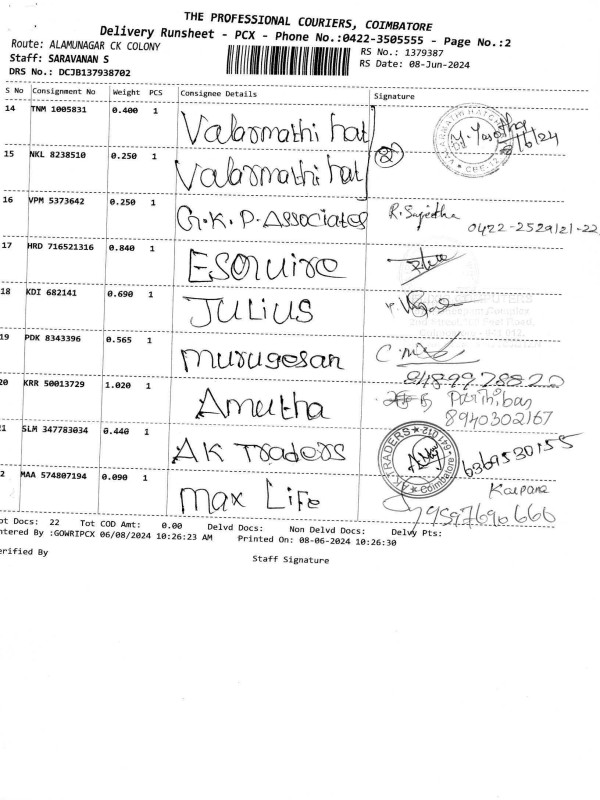 THE PROFESSIONAL COURIERS, COIMBATORE
Delivery Runsheet - PCX - Phone No.:0422-3505555 - Page No.:2
Route: ALAMUNAGAR CK COLONY
RS No.: 1379387
Staff: SARAVANAN S
RS Date: 08-Jun-2024
DRS No.: DCJB137938702
S No Consignment No Weight PCS Consignee Details Signature
14 TNM 1005831 0.400 1 Valarmathi hat
15 NKL 8238510 0.250 1 Valarmathi hat
16 VPM 5373642 0.250 1 G.K.P. Associates R. Sujeetha
0422-2529121-22
17 HRD 716521316 0.840 1 ESQUIRE
18 KDI 682141 0.690 1 JULIUS
19 PDK 8343396 0.565 1 murugesan
9489978820
20 KRR 50013729 1.020 1 Amutha Parthiban
8940302167
21 SLM 347783034 0.440 1 AK Traders A.K.TRADERS Coimbatore 6369530155
2 MAA 574807194 0.090 1 max Life Kalpana
9597690666
ot Docs: 22 Tot COD Amt: 0.00 Delvd Docs: Non Delvd Docs: Delvy Pts:
ntered By :GOWRIPCX 06/08/2024 10:26:23 AM Printed On: 08-06-2024 10:26:30
erified By Staff Signature